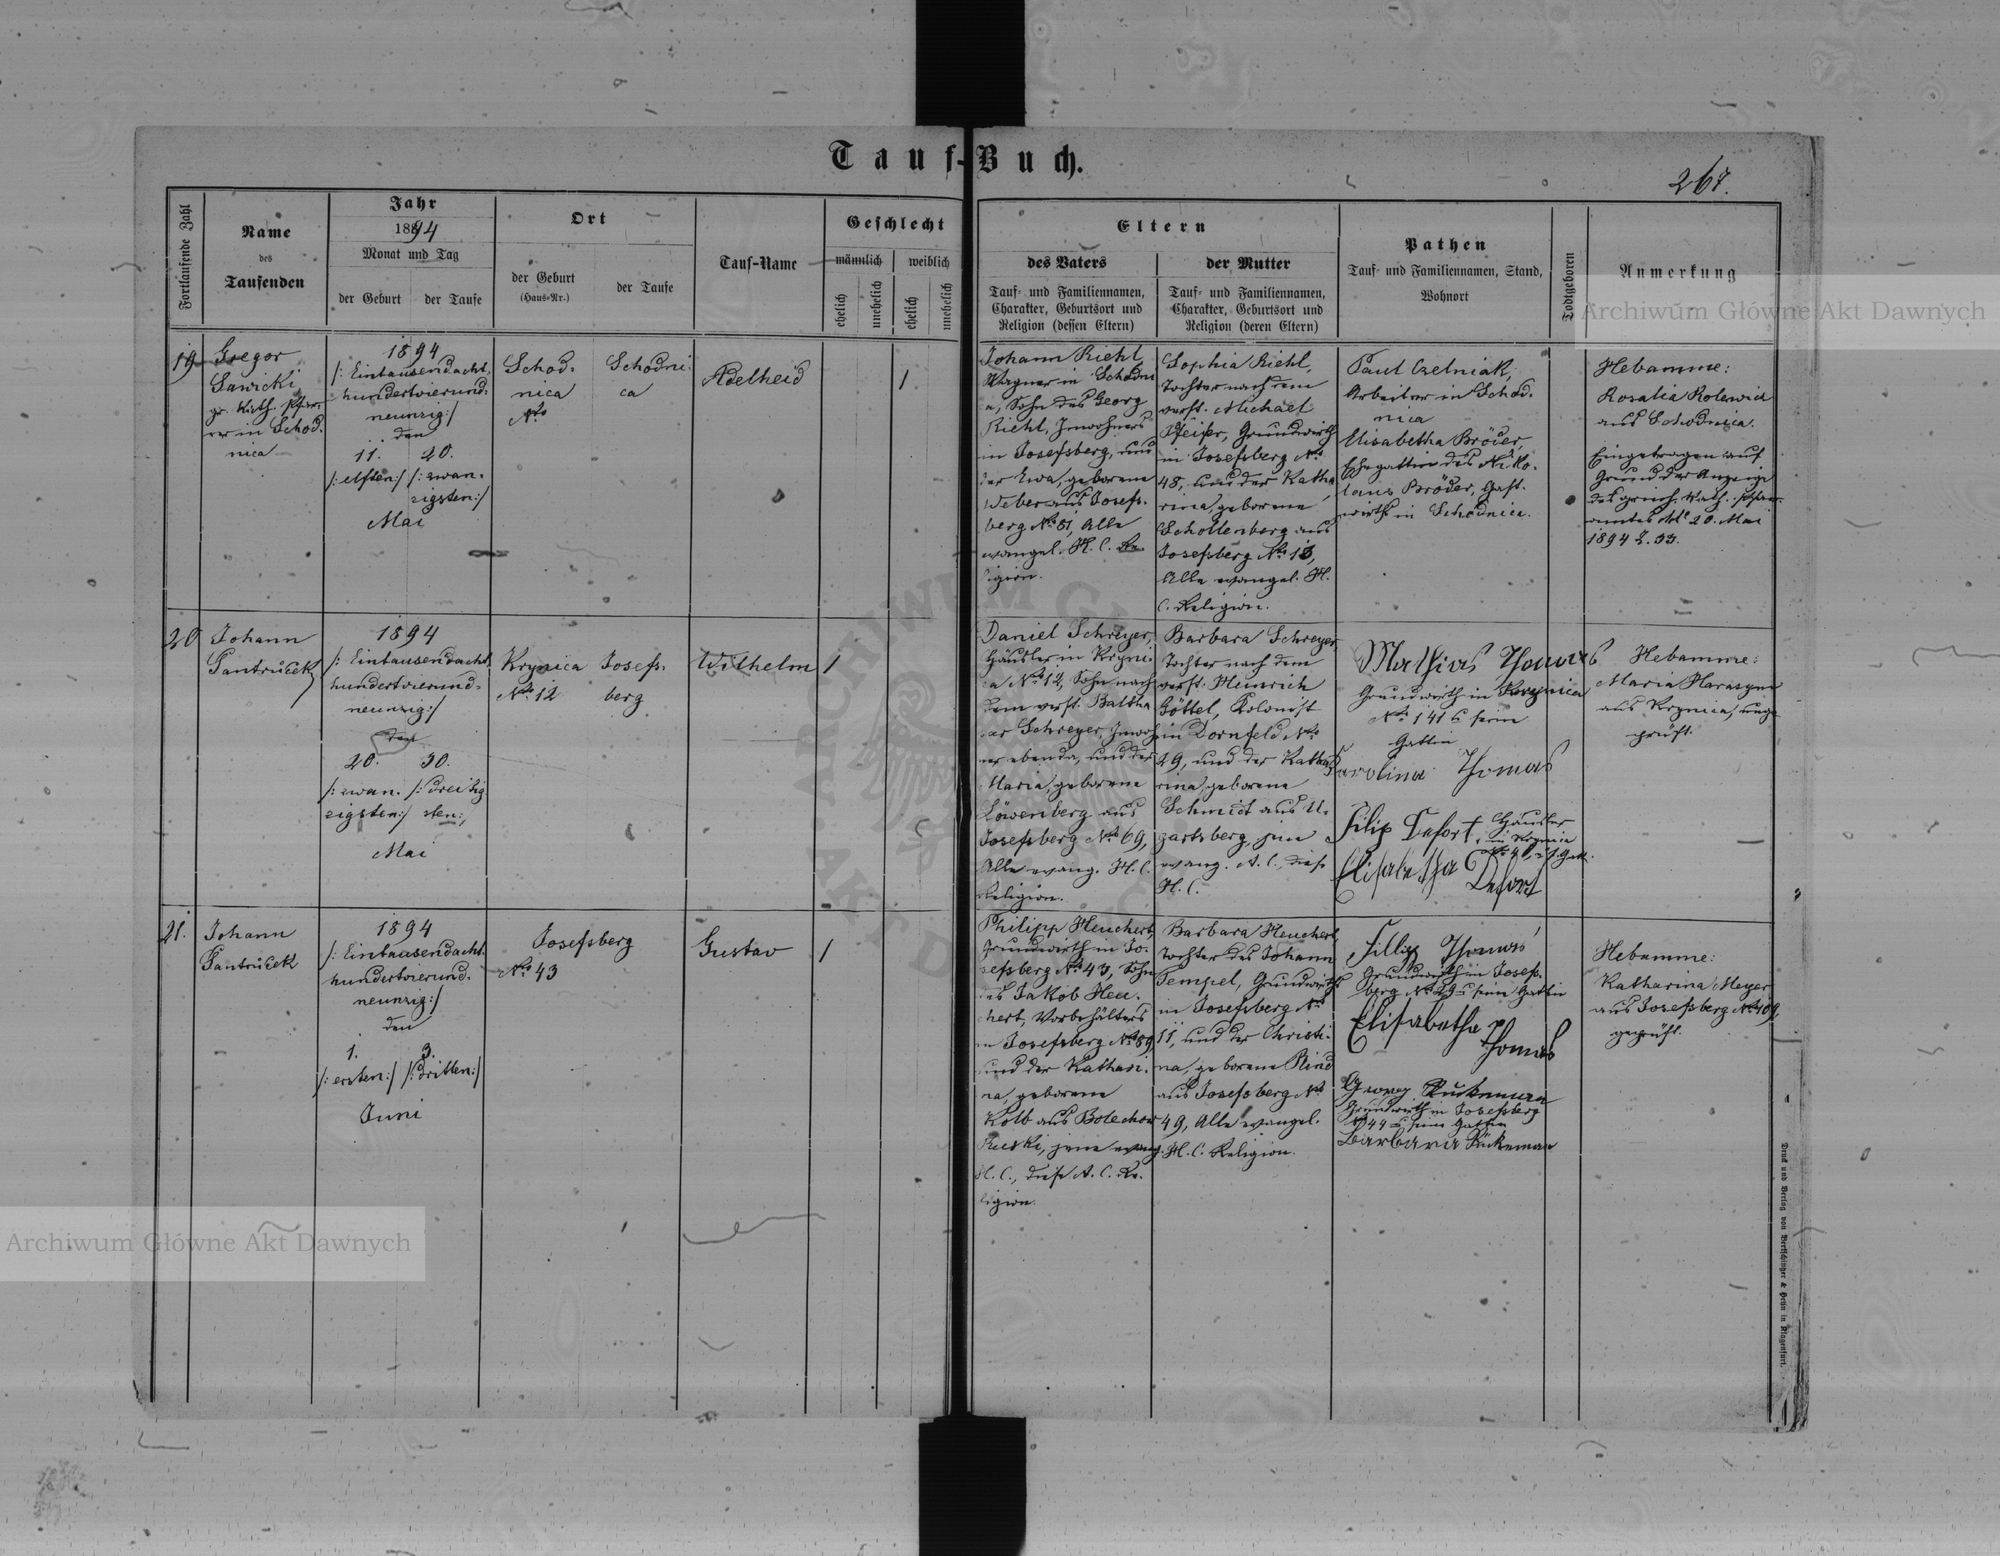 Tauf-Buch.
267.
Fortlaufende Zahl
Name
des
Taufenden
Jahr
1894
Monat und Tag
der Geburt
der Taufe
Ort
der Geburt
(Haus-Nr.)
der Taufe
Tauf-Name
Geschlecht
männlich
weiblich
ehelich
unehelich
ehelich
unehelich
Eltern
des Vaters
Tauf- und Familiennamen,
Charakter, Geburtsort und
Religion (dessen Eltern)
der Mutter
Tauf- und Familiennamen,
Charakter, Geburtsort und
Religion (deren Eltern)
Pathen
Tauf- und Familiennamen, Stand,
Wohnort
Todtgeboren
Anmerkung
19
Gregor
Sawicki
gr. kath. Pfar-
rer in Schod-
nica
1894
/: Eintausendacht-
hundertvierund-
neunzig:/
den
11. 20.
/: elften:/ /: zwan-
zigsten:/
Mai
Schod-
nica
No
Schodni-
ca
Adelheid
1
Johann Riehl,
Wagner in Schodni
a, Sohn des Georg
Riehl, Inwohners
in Josefsberg, und
der Ewa, geborene
Weber aus Josefs-
berg No 81, Alle
evangel. H. C. Re-
ligion.
Sophia Riehl,
Tochter nach dem
verst. Michael
Pfeifer, Grundwirth
in Josefsberg No
48, und der Katha
rina, geborene
Schollenberg aus
Josefsberg No 13,
Alle evangel. H.
C. Religion.
Paul Czelniak,
Arbeiter in Schod-
nica
Elisabetha Bröder,
Ehegattin des Niko-
laus Bröder, Gast-
wirths in Schodnica.
Hebamme:
Rosalia Rolewicz
aus Schodnica.
Eingetragen auf
Grund der Anzeige
des griech. kath. Pfarr-
amtes 20. Mai
1894 Z. 33.
20
Johann
Gantruček
1894
/: Eintausendacht
hundertvierund-
neunzig:/
den
20. 30.
/: zwan- /: dreißig
zigsten:/ sten:/
Mai
Krynica
No 12
Josefs-
berg
Wilhelm
1
Daniel Schreyer,
Häusler in Kryni
ca No 12, Sohn nach
dem verst. Baltha
sar Schreyer, Inwoh
ner ebenda, und der
Maria, geborene
Löwenberg aus
Josefsberg No 69,
Alle evang. H. C.
Religion.
Barbara Schreyer
Tochter nach dem
verst. Heinrich
Göttel, Kolonist
in Dornfeld No
29, und der Katha
rina, geborene
Schmidt aus U-
gartsberg, jene
evang. A. C., diese
H. C.
Mathias Thomas
Grundwirth in Krynica
No 141 u. seine
Gattin
Karolina Thomas
Filip Defort, Häusler
in Krynica
No 40, u. s. Gatt.
Elisabetha
Defort
Hebamme:
Maria Harasym
aus Krynica, unge
prüft.
21.
Johann
Gantruček
1894
/: Eintausendacht-
hundertvierund-
neunzig:/
den
1. 3.
/: ersten:/ /: dritten:/
Juni
Josefsberg
No 43
Gustav
1
Philipp Heuchert,
Grundwirth in Jo-
sefsberg No 43, Sohn
des Jakob Heu-
chert, Vorbehälters
in Josefsberg No 89
und der Kathari-
na, geborene
Kolb aus Bolechow
Ruski, jene evang.
H. C., diese A. C. Re-
ligion.
Barbara Heuchert,
Tochter des Johann
Tempel, Grundwirths
in Josefsberg No
11, und der Christi-
na, geborene Rind
aus Josefsberg No
49, Alle evangel.
H. C. Religion.
Fillip Thomas
Grundwirth in Josefs-
berg No 29 u. seine Gattin
Elisabetha
Thomas
Georg Rückemann
Grundwirth in Josefsberg
No 44 u. seine Gattin
Barbara Rückemann
Hebamme:
Katharina Meyer
aus Josefsberg No 109,
geprüft.
Druck und Verlag von Bertschinger & Heyn in Klagenfurt.
Archiwum Główne Akt Dawnych
Archiwum Główne Akt Dawnych